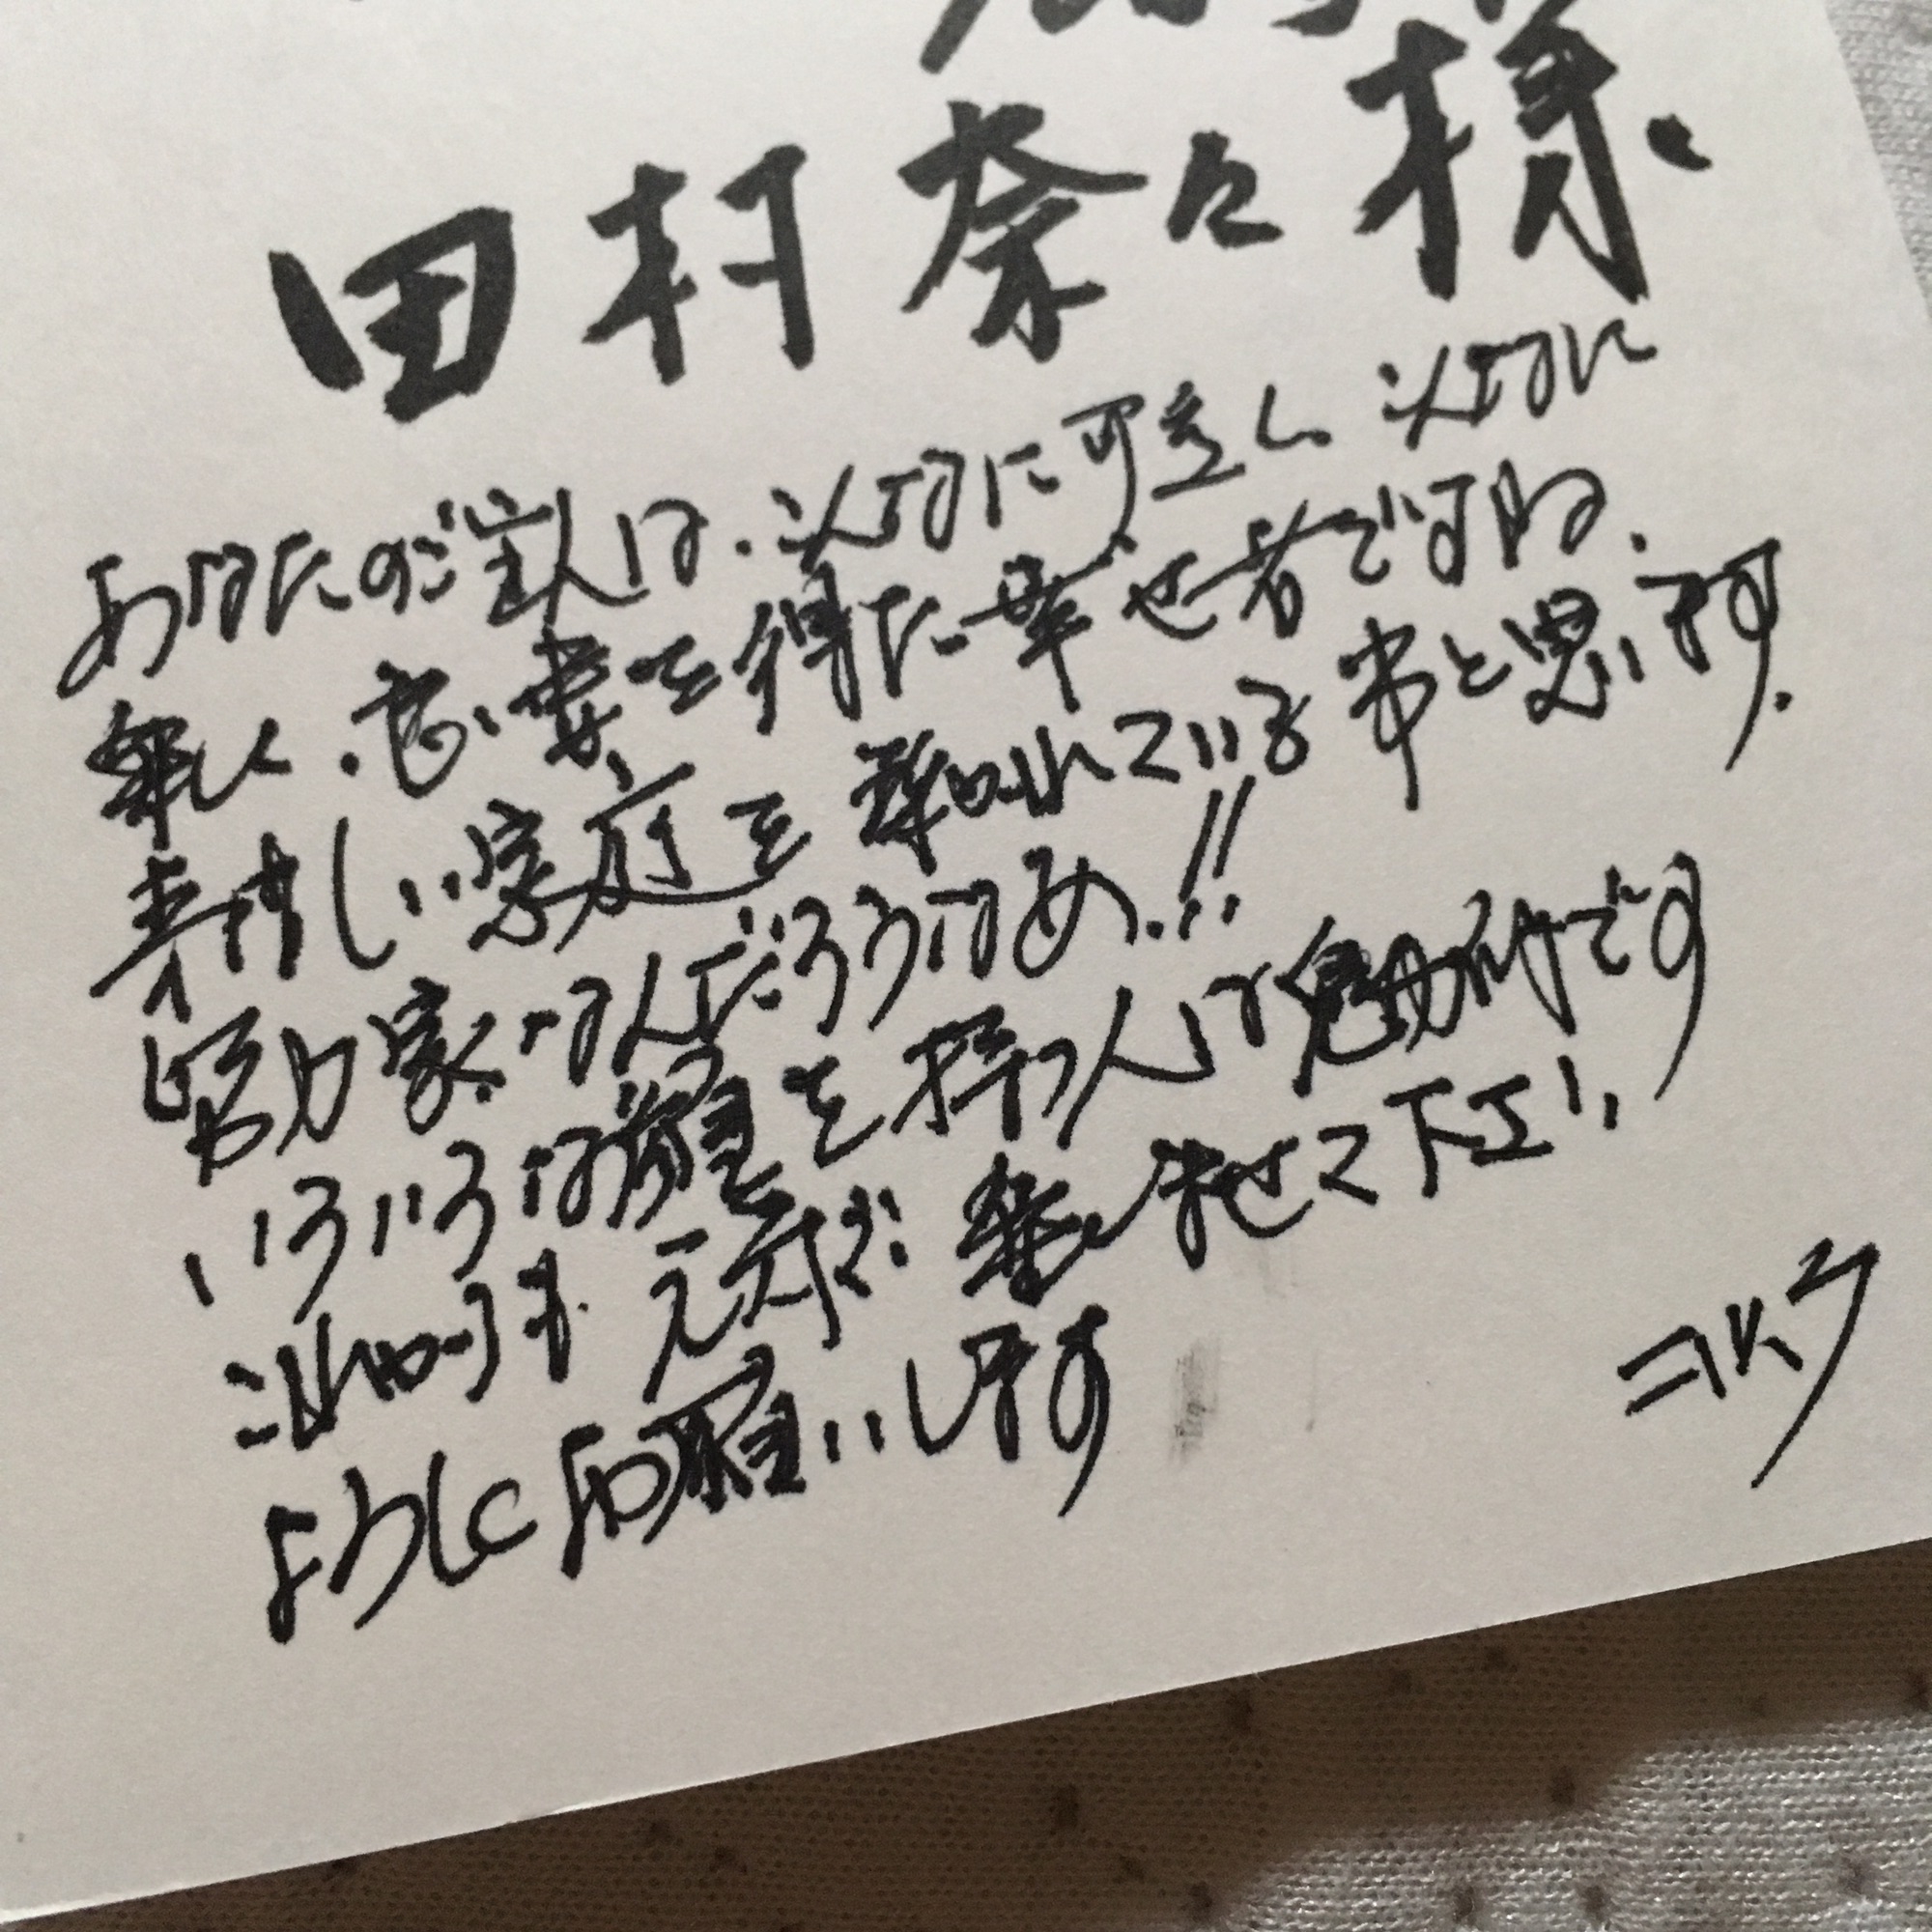 田村奈々様、
あなたのご主人は、こんなに可愛く、こんなに
楽しく、良い妻を得た幸せ者ですね、
素晴しい家庭を築かれている事と思います。
協力家なんだろうなあ、!!
いろいろな顔を持つ人は魅力的です
これからも元気が出ませて下さい、
よろしくお願いします